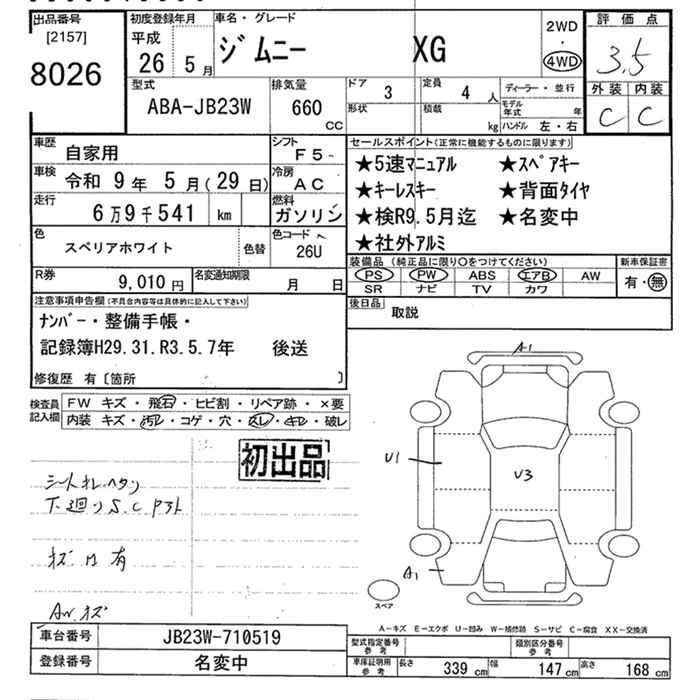 出品番号
[2157]
8026
初度登録年月
平成
26 5 月
車名・グレード
ジムニー XG
2WD
・
4WD
評価点
3.5
外装 内装
C C
型式
ABA-JB23W
排気量
660
CC
ドア 3
形状
定員 4 人
積載 kg
ディーラー・並行
モデル年式 年
ハンドル 左・右
車歴
自家用
シフト
F5
車検 令和 9 年 5 月(29 日)
冷房
AC
走行
6万9千541 km
燃料
ガソリン
色
スペリアホワイト
色替
色コード
26U
R券 9,010 円
名変通知期限 月 日
セールスポイント(正常に機能するものに限ります)
★5速マニュアル ★スペアキー
★キーレスキー ★背面タイヤ
★検R9.5月迄 ★名変中
★社外アルミ
装備品 (純正品に限り〇をつけてください)
PS PW ABS エアB AW
SR ナビ TV カワ
新車保証書
有・無
後日品
取説
注意事項申告欄(不具合内容等は具体的に記入して下さい)
ナンバー・整備手帳・
記録簿H29.31.R3.5.7年 後送
修復歴 有〔箇所 〕
検査員
記入欄
FW キズ・飛石・ヒビ割・リペア跡・×要
内装 キズ・汚レ・コゲ・穴・スレ・キレ・破レ
初出品
シートオレ.ヘタリ
下廻りS.C
有
AW.キズ
A1
U1
U3
A1
スペア
A−キズ E−エクボ U−凹み W−補修跡 S−サビ C−腐食 XX−交換済
車台番号 JB23W-710519
登録番号 名変中
型式指定番号
参考
類別区分番号
参考
車庫証明用
参考
長さ 339 cm 幅 147 cm 高さ 168 cm